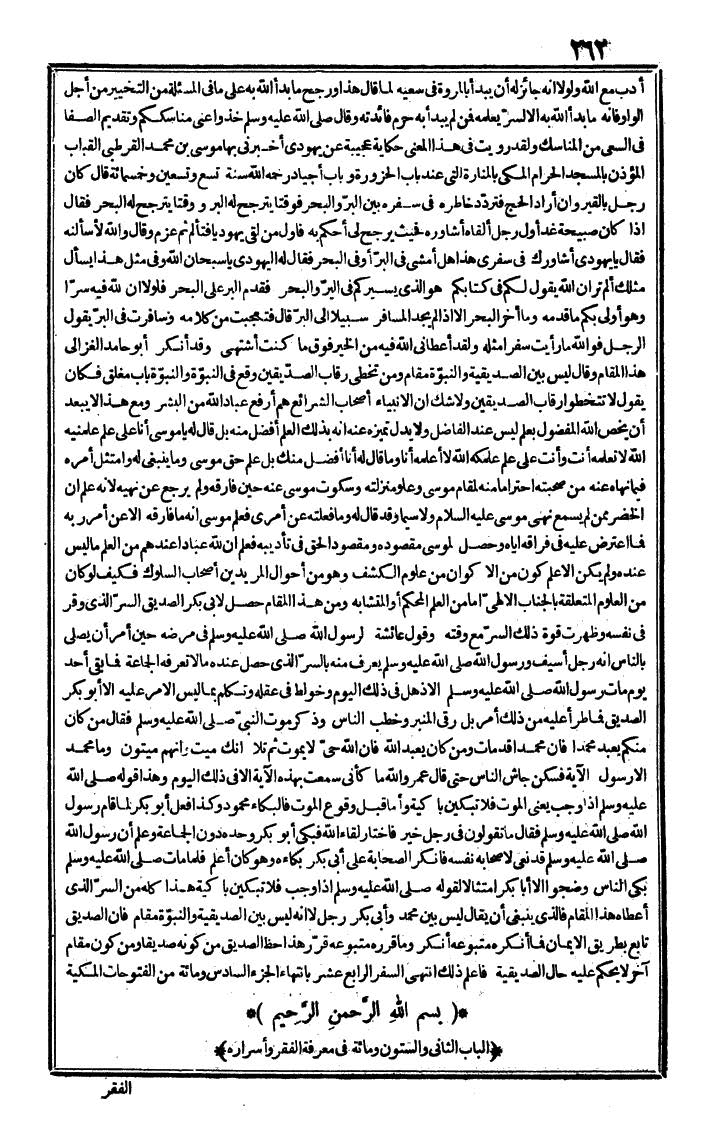 ٢٦٢
أدب مع الله ولولا انه جائز له أن يبدأ بالمروة فى سعيه لما قال هذا ورجح ما بدأ الله به على ما فى المسئلة من التخيير من أجل
الواو فانه ما بدأ الله به الا لسرّ يعلمه فمن لم يبدأ به حرم فائدته وقال صلى الله عليه وسلم خذوا عنى مناسككم وتقديم الصفا
فى السعى من المناسك ولقد رويت فى هذا المعنى حكاية عجيبة عن يهودى أخبرنى بها موسى بن محمد القرطبى القباب
المؤذن بالمسجد الحرام المكى بالمنارة التى عند باب الحزورة وباب أجياد رحمه الله سنة تسع وتسعين وخمسمائة قال كان
رجل بالقيروان أراد الحج فتردّد خاطره فى سفره بين البرّ والبحر فوقتا يترجح له البر و وقتا يترجح له البحر فقال
اذا كان صبيحة غد أول رجل ألقاه أشاوره فحيث يرجح لى أحكم به فاول من لقى يهوديا فتألم ثم عزم وقال والله لأسألنه
فقال يا يهودى أشاورك فى سفرى هذا هل أمشى فى البرّ أو فى البحر فقال له اليهودى يا سبحان الله وفى مثل هذا يسأل
مثلك ألم تر ان الله يقول لكم فى كتابكم هو الذى يسيركم فى البرّ والبحر فقدم البر على البحر فلولا ان لله فيه سرّا
وهو أولى بكم ما قدمه وما أخر البحر الا اذا لم يجد المسافر سبيلا الى البرّ قال فتعجبت من كلامه وسافرت فى البرّ يقول
الرجل فوالله ما رأيت سفرا مثله ولقد أعطانى الله فيه من الخير فوق ما كنت أشتهى وقد أنكر أبو حامد الغزالى
هذا المقام وقال ليس بين الصديقية والنبوّة مقام ومن تخطى رقاب الصدّيقين وقع فى النبوّة والنبوّة باب مغلق فكان
يقول لا تتخطوا رقاب الصديقين ولا شك ان الانبياء أصحاب الشرائع هم أرفع عباد الله من البشر ومع هذا لا يبعد
أن يخص الله المفضول بعلم ليس عند الفاضل ولا يدل تميزه عنه انه بذلك العلم أفضل منه بل قال له يا موسى أنا على علم علمنيه
الله لا تعلمه أنت وأنت على علم علمكه الله لا أعلمه أنا وما قال له أنا أفضل منك بل علم حق موسى وما ينبغى له وامتثل أمره
فيما نهاه عنه من صحبته احتراما منه لمقام موسى وعلو منزلته وسكوت موسى عنه حين فارقه ولم يرجع عن نهيه لانه علم ان
الخضر ممن لم يسمع نهى موسى عليه السلام ولا سيما وقد قال له وما فعلته عن أمرى فعلم موسى انه ما فارقه الا عن أمر ربه
فما اعترض عليه فى فراقه اياه وحصل لموسى مقصوده ومقصود الحق فى تأديبه فعلم ان لله عبادا عندهم من العلم ما ليس
عنده ولم يكن الاعلم كون من الاكوان من علوم الكشف وهو من أحوال المريدين أصحاب السلوك فكيف لو كان
من العلوم المتعلقة بالجناب الالهىّ اما من العلم المحكم أو المتشابه ومن هذا المقام حصل لابى بكر الصديق السرّ الذى وقر
فى نفسه وظهرت قوة ذلك السرّ مع وقته وقول عائشة لرسول الله صلى الله عليه وسلم فى مرضه حين أمر أن يصلى
بالناس انه رجل أسيف ورسول الله صلى الله عليه وسلم يعرف منه بالسرّ الذى حصل عنده ما لا تعرفه الجماعة فما بقى أحد
يوم مات رسول الله صلى الله عليه وسلم الا ذهل فى ذلك اليوم وخولط فى عقله وتكلم بما ليس الامر عليه الا أبو بكر
الصديق فما طرأ عليه من ذلك أمر بل رقى المنبر وخطب الناس وذكر موت النبىّ صلى الله عليه وسلم فقال من كان
منكم يعبد محمدا فان محمدا قد مات ومن كان يعبد الله فان الله حىّ لا يموت ثم تلا انك ميت وانهم ميتون وما محمد
الا رسول الآية فسكن جاش الناس حتى قال عمر والله ما كأنى سمعت بهذه الآية الا فى ذلك اليوم وهذا قوله صلى الله
عليه وسلم اذا وجب يعنى الموت فلا تبكين باكية وأما قبل وقوع الموت فالبكاء محمود وكذا فعل أبو بكر لما قام رسول
الله صلى الله عليه وسلم فقال ما تقولون فى رجل خير فاختار لقاء الله فبكى أبو بكر وحده دون الجماعة وعلم أن رسول الله
صلى الله عليه وسلم قد نعى لاصحابه نفسه فانكر الصحابة على أبى بكر بكاءه وهو كان أعلم فلما مات صلى الله عليه وسلم
بكى الناس وضجوا الا أبا بكر امتثالا لقوله صلى الله عليه وسلم اذا وجب فلا تبكين باكية هذا كله من السرّ الذى
أعطاه هذا المقام فالذى ينبغى أن يقال ليس بين محمد وأبى بكر رجل لا انه ليس بين الصديقية والنبوّة مقام فان الصديق
تابع بطريق الايمان فما أنكره متبوعه أنكر وما قرره متبوعه قرّر هذا حظ الصديق من كونه صديقا ومن كون مقام
آخر لا يحكم عليه حال الصديقية فاعلم ذلك انتهى السفر الرابع عشر بانتهاء الجزء السادس ومائة من الفتوحات المكية
*( بسم الله الرَّحمن الرَّحيم )*
﴿الباب الثانى والستون ومائة فى معرفة الفقر وأسراره﴾
الفقر